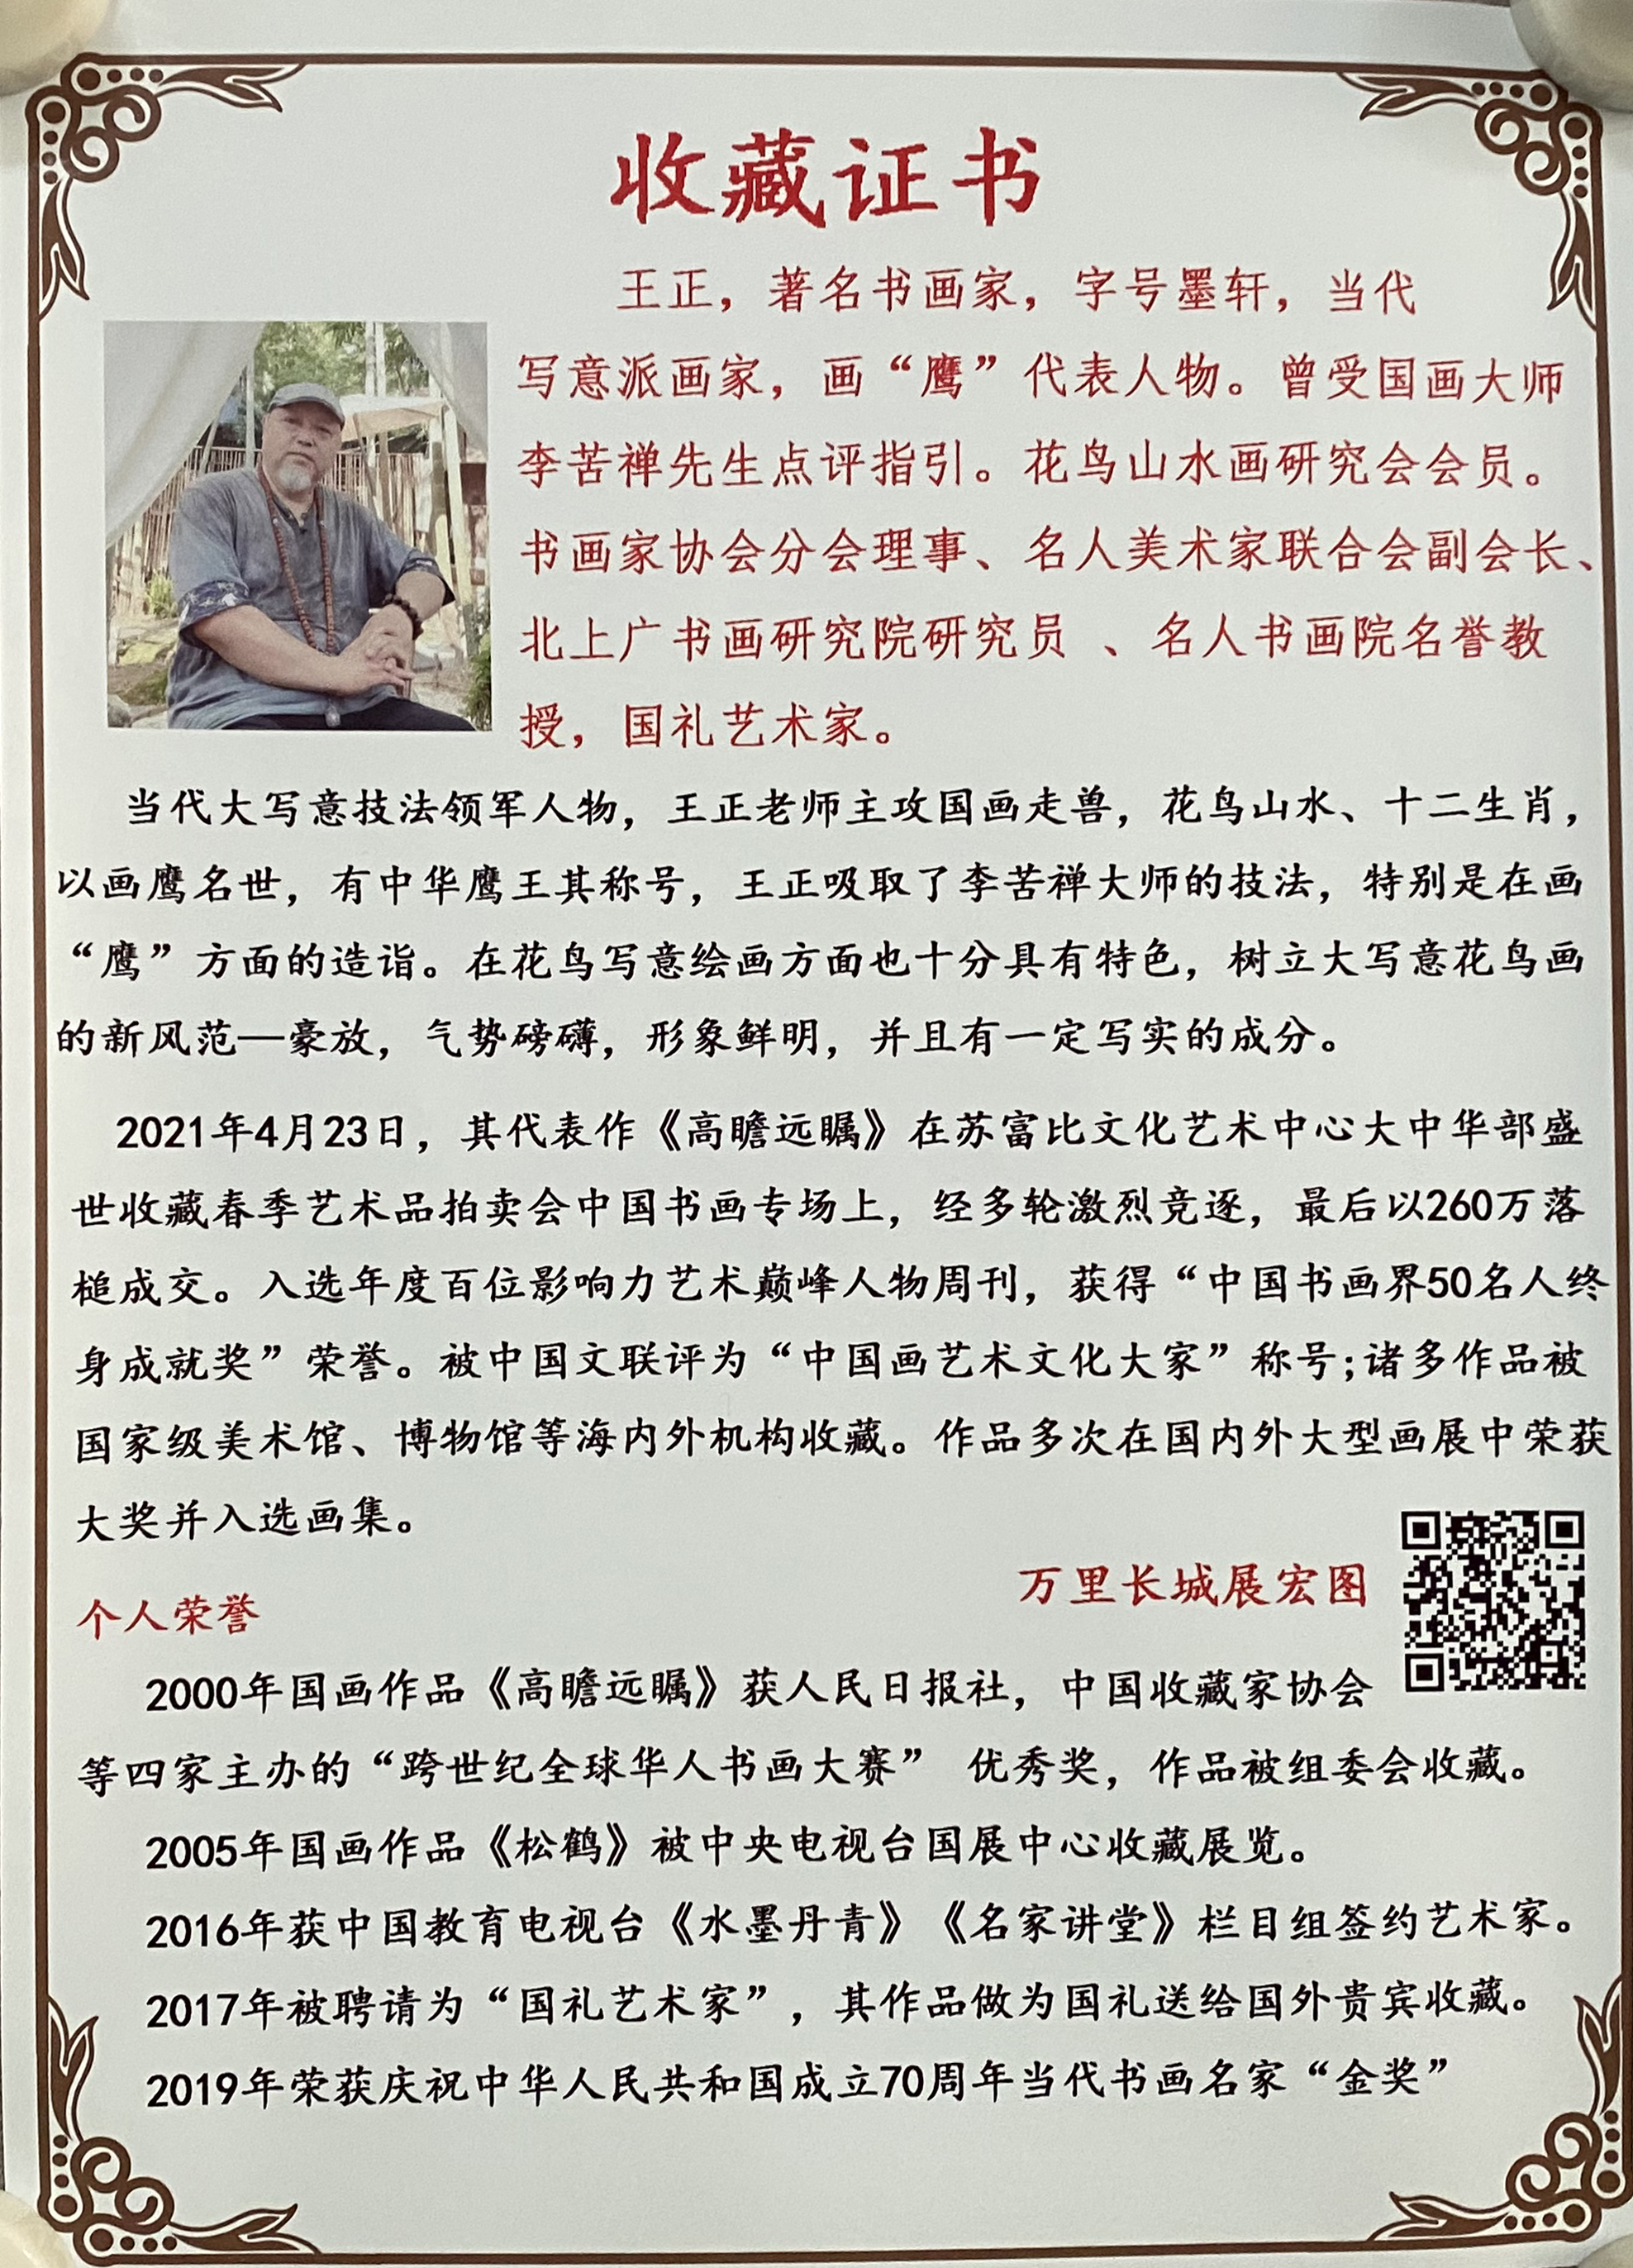 收藏证书
王正，著名书画家，字号墨轩，当代
写意派画家，画“鹰”代表人物。曾受国画大师
李苦禅先生点评指引。花鸟山水画研究会会员。
书画家协会分会理事、名人美术家联合会副会长、
北上广书画研究院研究员 、名人书画院名誉教
授，国礼艺术家。
当代大写意技法领军人物，王正老师主攻国画走兽，花鸟山水、十二生肖，
以画鹰名世，有中华鹰王其称号，王正吸取了李苦禅大师的技法，特别是在画
“鹰”方面的造诣。在花鸟写意绘画方面也十分具有特色，树立大写意花鸟画
的新风范—豪放，气势磅礴，形象鲜明，并且有一定写实的成分。
2021年4月23日，其代表作《高瞻远瞩》在苏富比文化艺术中心大中华部盛
世收藏春季艺术品拍卖会中国书画专场上，经多轮激烈竞逐，最后以260万落
槌成交。入选年度百位影响力艺术巅峰人物周刊，获得“中国书画界50名人终
身成就奖”荣誉。被中国文联评为“中国画艺术文化大家”称号;诸多作品被
国家级美术馆、博物馆等海内外机构收藏。作品多次在国内外大型画展中荣获
大奖并入选画集。
万里长城展宏图
个人荣誉
2000年国画作品《高瞻远瞩》获人民日报社，中国收藏家协会
等四家主办的“跨世纪全球华人书画大赛” 优秀奖，作品被组委会收藏。
2005年国画作品《松鹤》被中央电视台国展中心收藏展览。
2016年获中国教育电视台《水墨丹青》《名家讲堂》栏目组签约艺术家。
2017年被聘请为“国礼艺术家”，其作品做为国礼送给国外贵宾收藏。
2019年荣获庆祝中华人民共和国成立70周年当代书画名家“金奖”